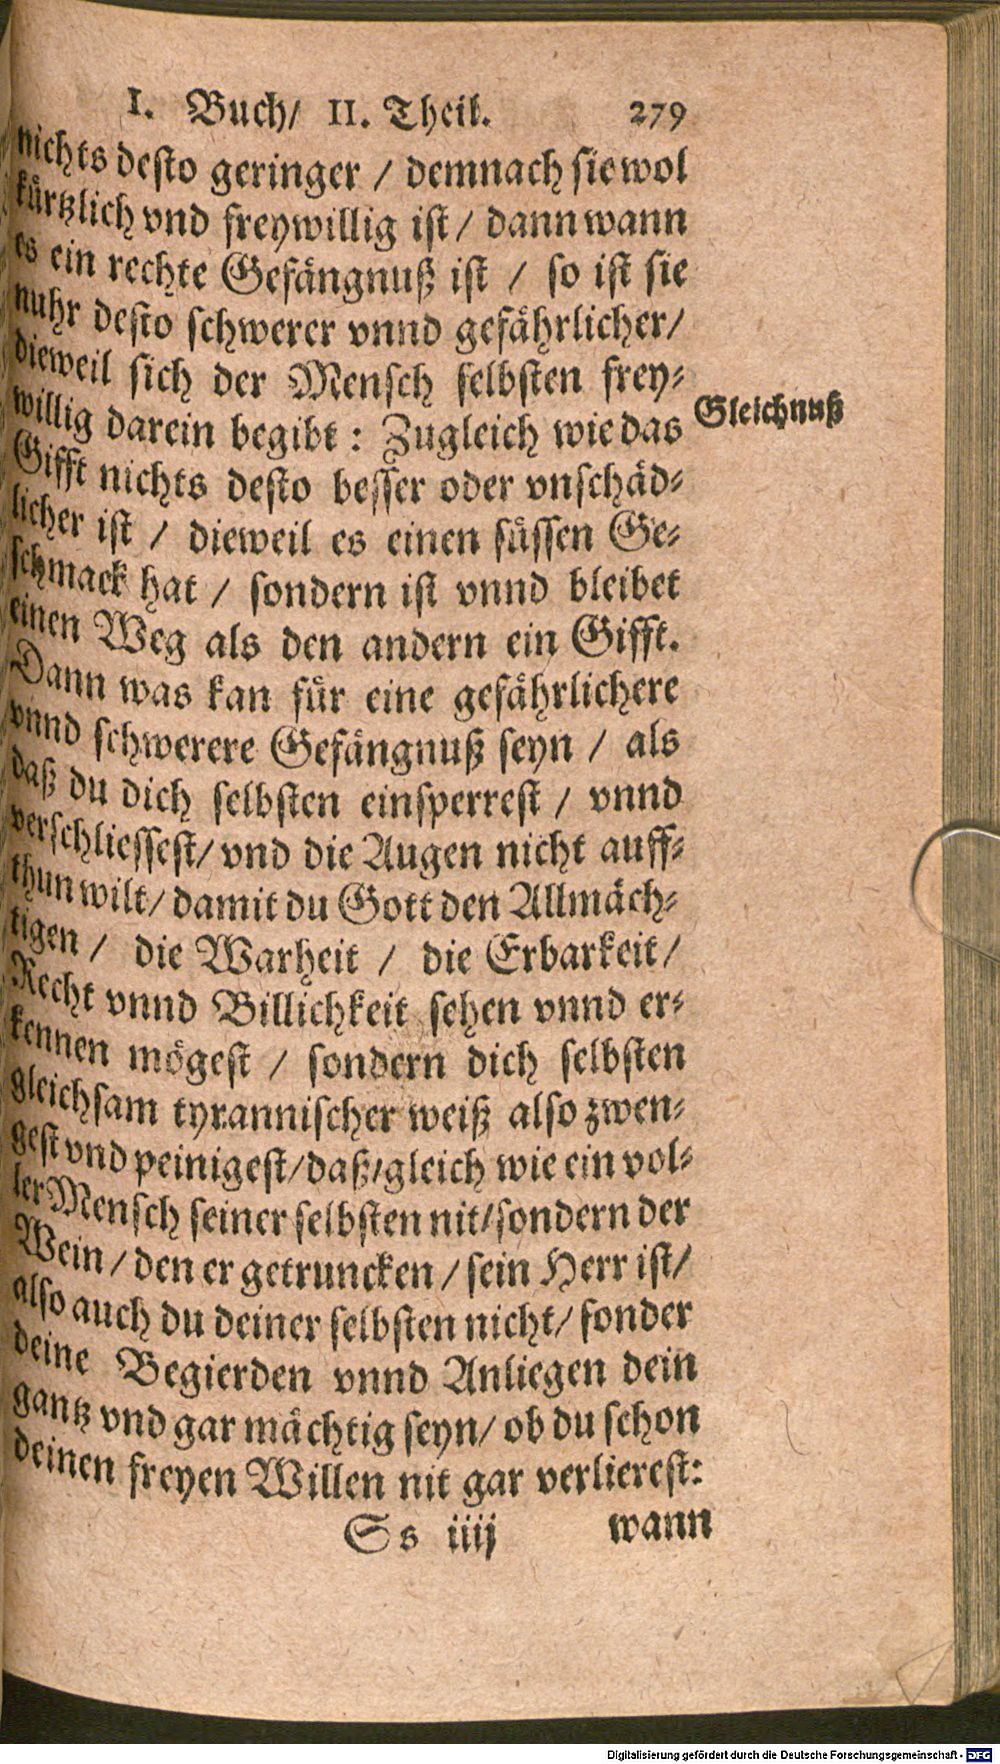 I. Buch/ II. Theil. 279
nichts desto geringer / demnach sie wol
kürtzlich vnd freywillig ist / dann wann
es ein rechte Gefängnuß ist / so ist sie
nuhr desto schwerer vnnd gefährlicher/
dieweil sich der Mensch selbsten frey-
willig darein begibt : Zugleich wie das
Gleichnuß
Gifft nichts desto besser oder vnschäd-
licher ist / dieweil es einen süssen Ge-
schmack hat / sondern ist vnnd bleibet
einen Weg als den andern ein Gifft.
Dann was kan für eine gefährlichere
vnnd schwerere Gefängnuß seyn / als
daß du dich selbsten einsperrest / vnnd
verschliessest/ vnd die Augen nicht auff-
thun wilt/ damit du Gott den Allmäch-
tigen / die Warheit / die Erbarkeit/
Recht vnnd Billichkeit sehen vnnd er-
kennen mögest / sondern dich selbsten
gleichsam tyrannischer weiß also zwen-
gest vnd peinigest/daß/gleich wie ein vol-
ler Mensch seiner selbsten nit/sondern der
Wein / den er getruncken / sein Herr ist/
also auch du deiner selbsten nicht/ sonder
deine Begierden vnnd Anliegen dein
gantz vnd gar mächtig seyn/ ob du schon
deinen freyen Willen nit gar verlierest:
Ss iiij wann
Digitalisierung gefördert durch die Deutsche Forschungsgemeinschaft - DFG